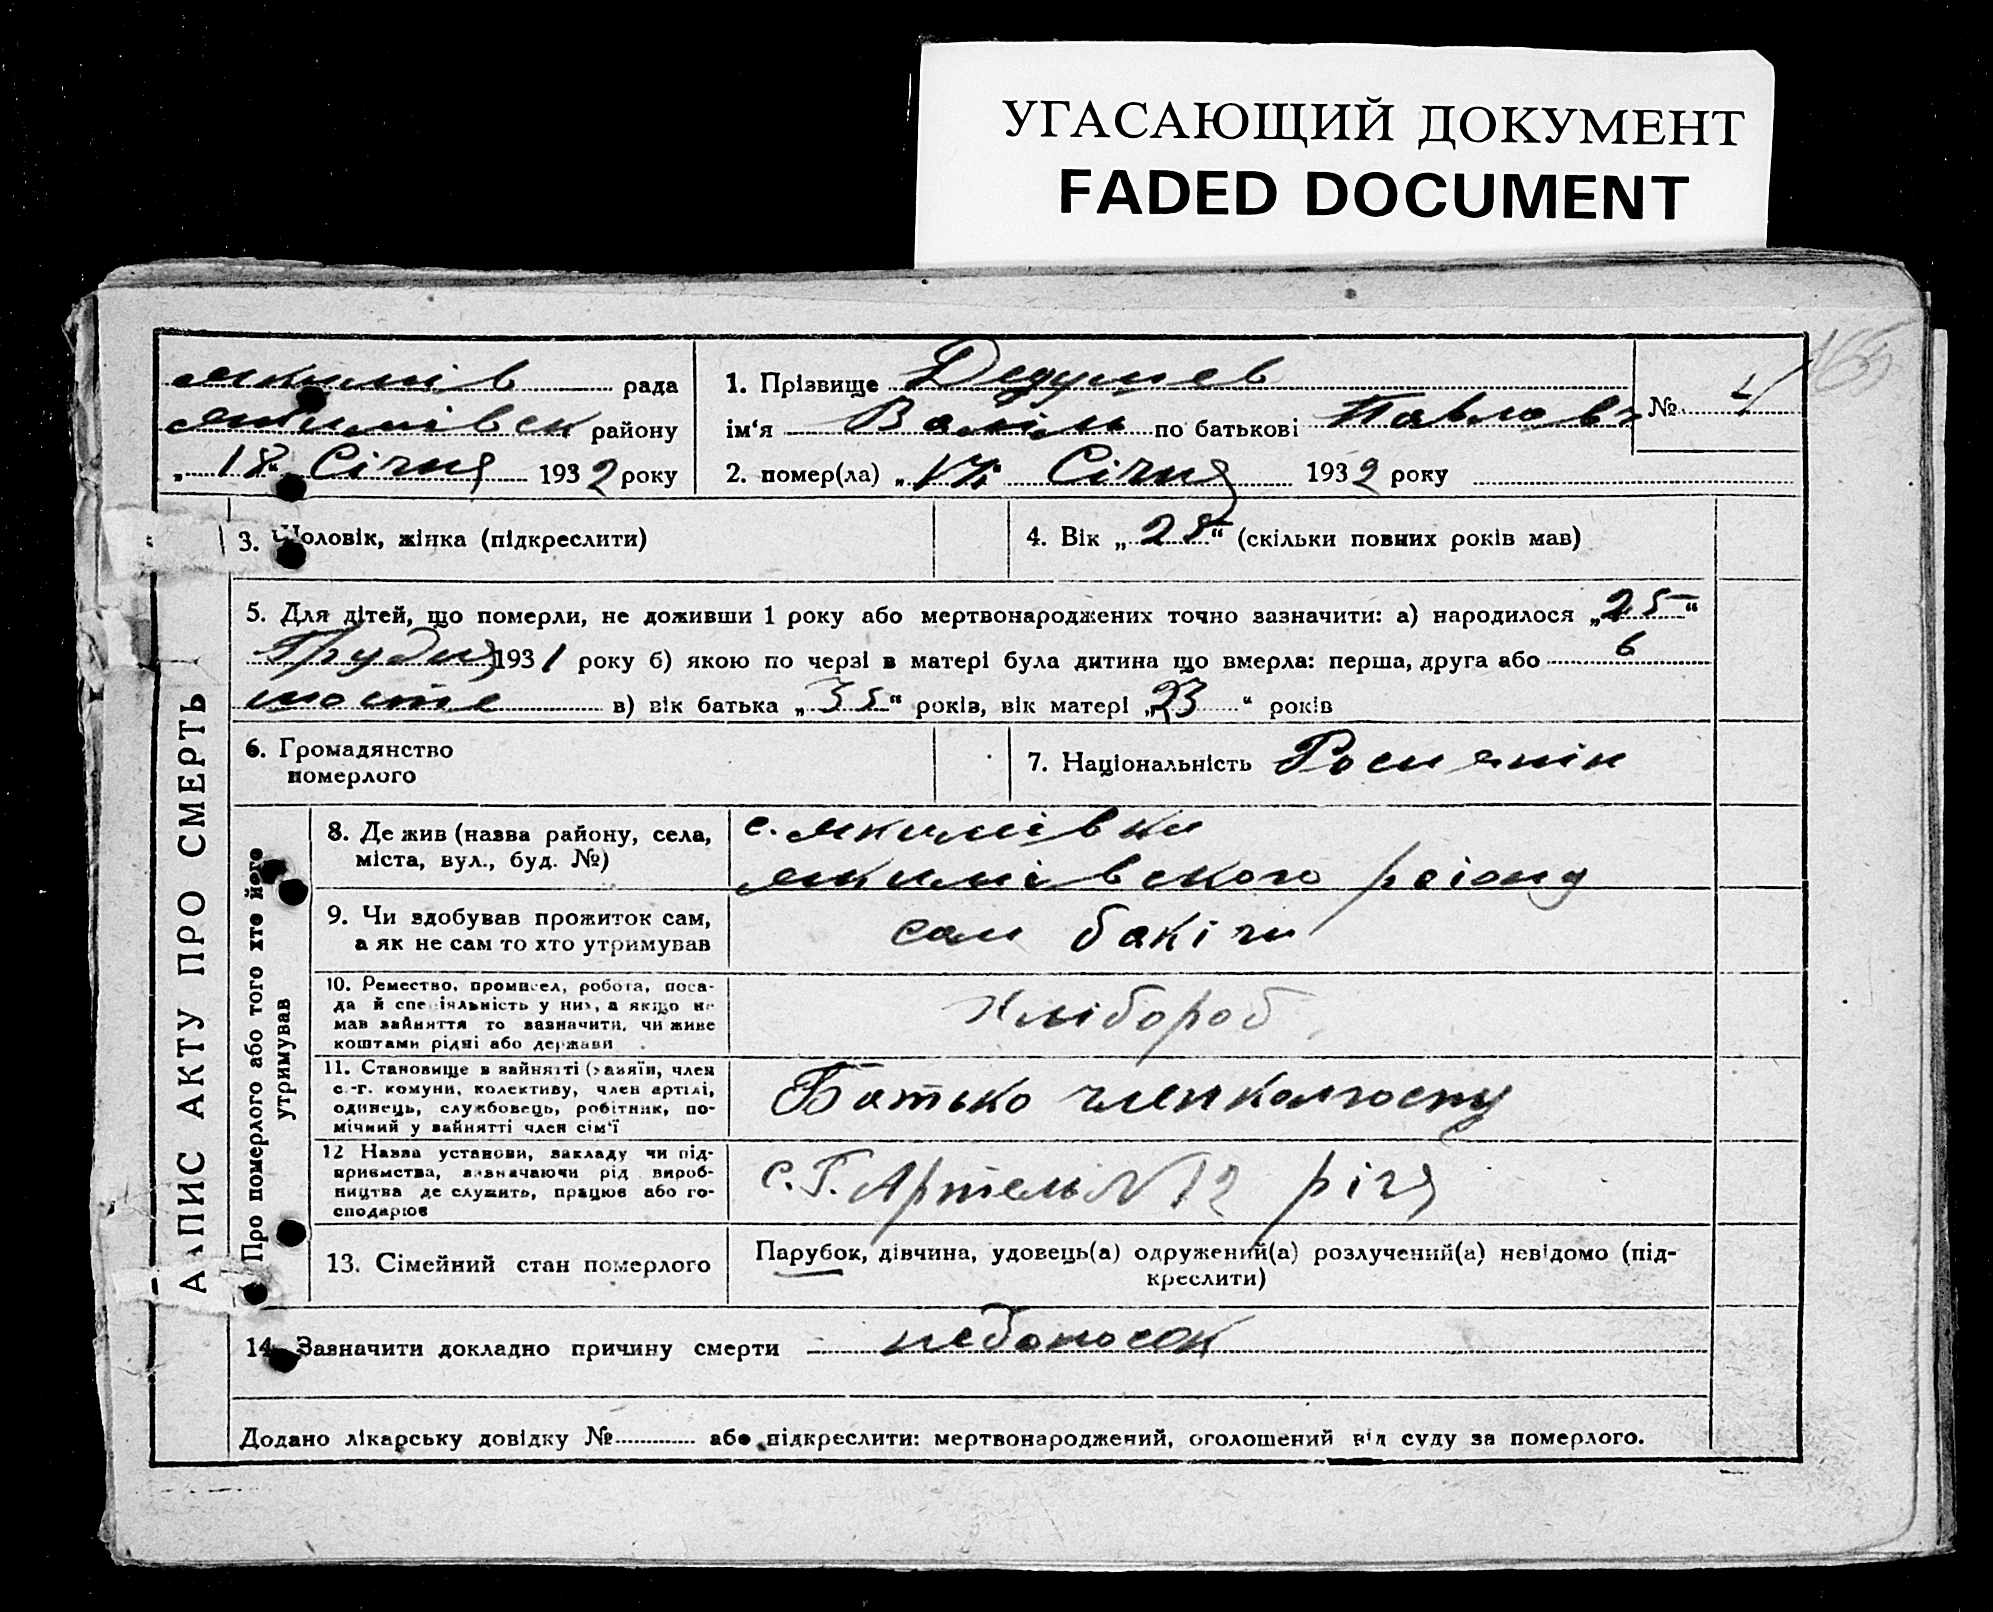 УГАСАЮЩИЙ ДОКУМЕНТ
FADED DOCUMENT
Якимів рада
Якимівськ району
„18“ Січня 1932 року
1. Прізвище
ім‘я по батькові Павлов
№ 4
2. помер(ла) „17“ Січня 1932 року
3. Чоловік, жінка (підкреслити)
4. Вік „25“ (скільки повних років мав)
5. Для дітей, що померли, не доживши 1 року або мертвонароджених точно зазначити: а) народилося „25“
Грудня 1931 року б) якою по черзі в матері була дитина що вмерла: перша, друга або 6
шосте в) вік батька „35“ років, вік матері „23“ років
6. Громадянство
померлого
7. Національність Росиянін
8. Де жив (назва району, села,
міста, вул., буд. №)
с. Якимівки
Якимівского
9. Чи здобував прожиток сам,
а як не сам то хто утримував
10. Ремество, промисел, робота, поса-
да й спеціяльність у них, а якщо не
мав зайняття то зазначити, чи живе
коштами рідні або держави
Хлібороб
11. Становище в зайнятті (хазяїн, член
с.-г. комуни, колективу, член артілі,
одинець, службовець, робітник, по-
мічний у зайнятті член сім‘ї
Батько член колгоспу
12 Назва установи, закладу чи під-
приємства, зазначаючи рід вироб-
ництва де служить, працює або го-
сподарює
с. Г. Артель №12
13. Сімейний стан померлого
Парубок, дівчина, удовець(а) одружений(а) розлучений(а) невідомо (під-
креслити)
14. Зазначити докладно причину смерти недоносок
Додано лікарську довідку № або підкреслити: мертвонароджений, оголошений від суду за померлого.
ЗАПИС АКТУ ПРО СМЕРТЬ
Про померлого або того хто його
утримував